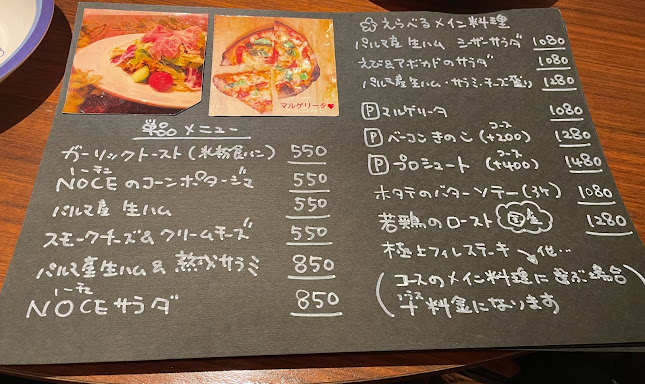 マルゲリータ♥
単品メニュー
ガーリックトースト(米粉食パン) 550
ノーチェ
NOCEのコーンポタージュ 550
パルマ産 生ハム 550
スモークチーズ&クリームチーズ 550
パルマ産生ハム & 熟成サラミ 850
ノーチェ
NOCEサラダ 850
えらべるメイン料理
パルマ産 生ハム シーザーサラダ 1080
えび&アボカドのサラダ 1080
パルマ産生ハム・サラミ・チーズ盛り 1280
Ⓟマルゲリータ 1080
コース
Ⓟベーコンきのこ (+200) 1280
コース
Ⓟプロシュート (+400) 1480
ホタテのバターソテー(3ヶ) 1080
若鶏のロースト 国産 1280
極上フィレステーキ 他…
(コースのメイン料理に選ぶ場合
プラス
+料金になります)